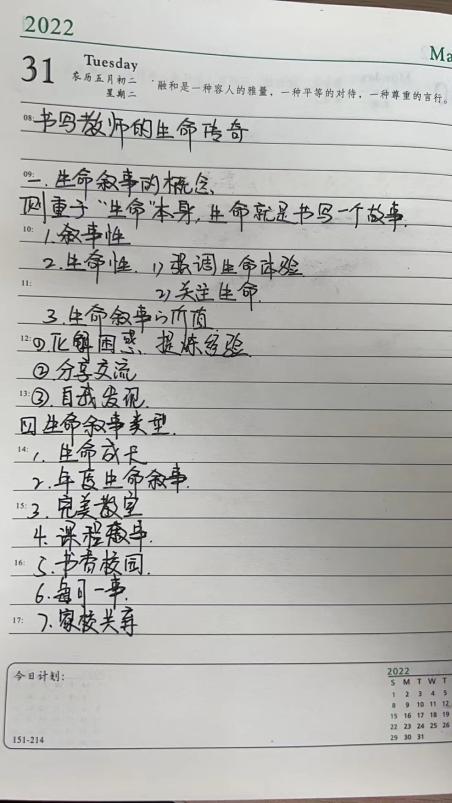 2022
Ma
31
Tuesday
农历五月初二
星期二
融和是一种容人的雅量，一种平等的对待，一种尊重的言行。
08:
书写教师的生命传奇
09:
一.生命叙事的概念
侧重于“生命”本身,生命就是书写一个故事.
10:
1.叙事性
2.生命性. 1)强调生命体验
11:
2)关注生命.
3.生命叙事的价值
12:
①.化解困惑、提炼经验.
②.分享交流
13:
③.自我发现.
四.生命叙事类型.
14:
1.生命成长
2.年度生命叙事.
15:
3.完美教室
4.课程叙事.
16:
5.书香校园.
6.每月一事.
17:
7.家校共育
今日计划:
151-214
2022
S M T W T
1 2 3 4 5
8 9 10 11 12
15 16 17 18 19
22 23 24 25 26
29 30 31